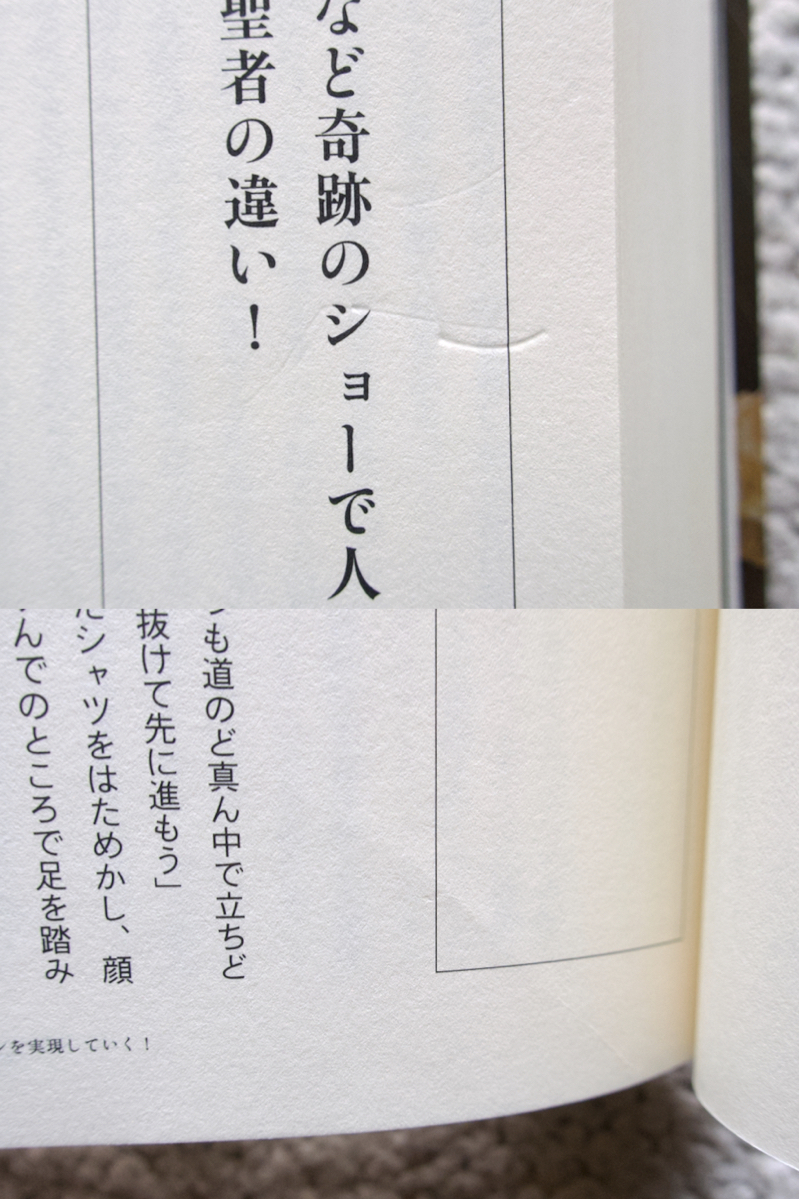 など奇跡のショーで人
聖者の違い！
も道のど真ん中で立ちど
抜けて先に進もう」
シャツをはためかし、顔
んでのところで足を踏み
を実現していく！